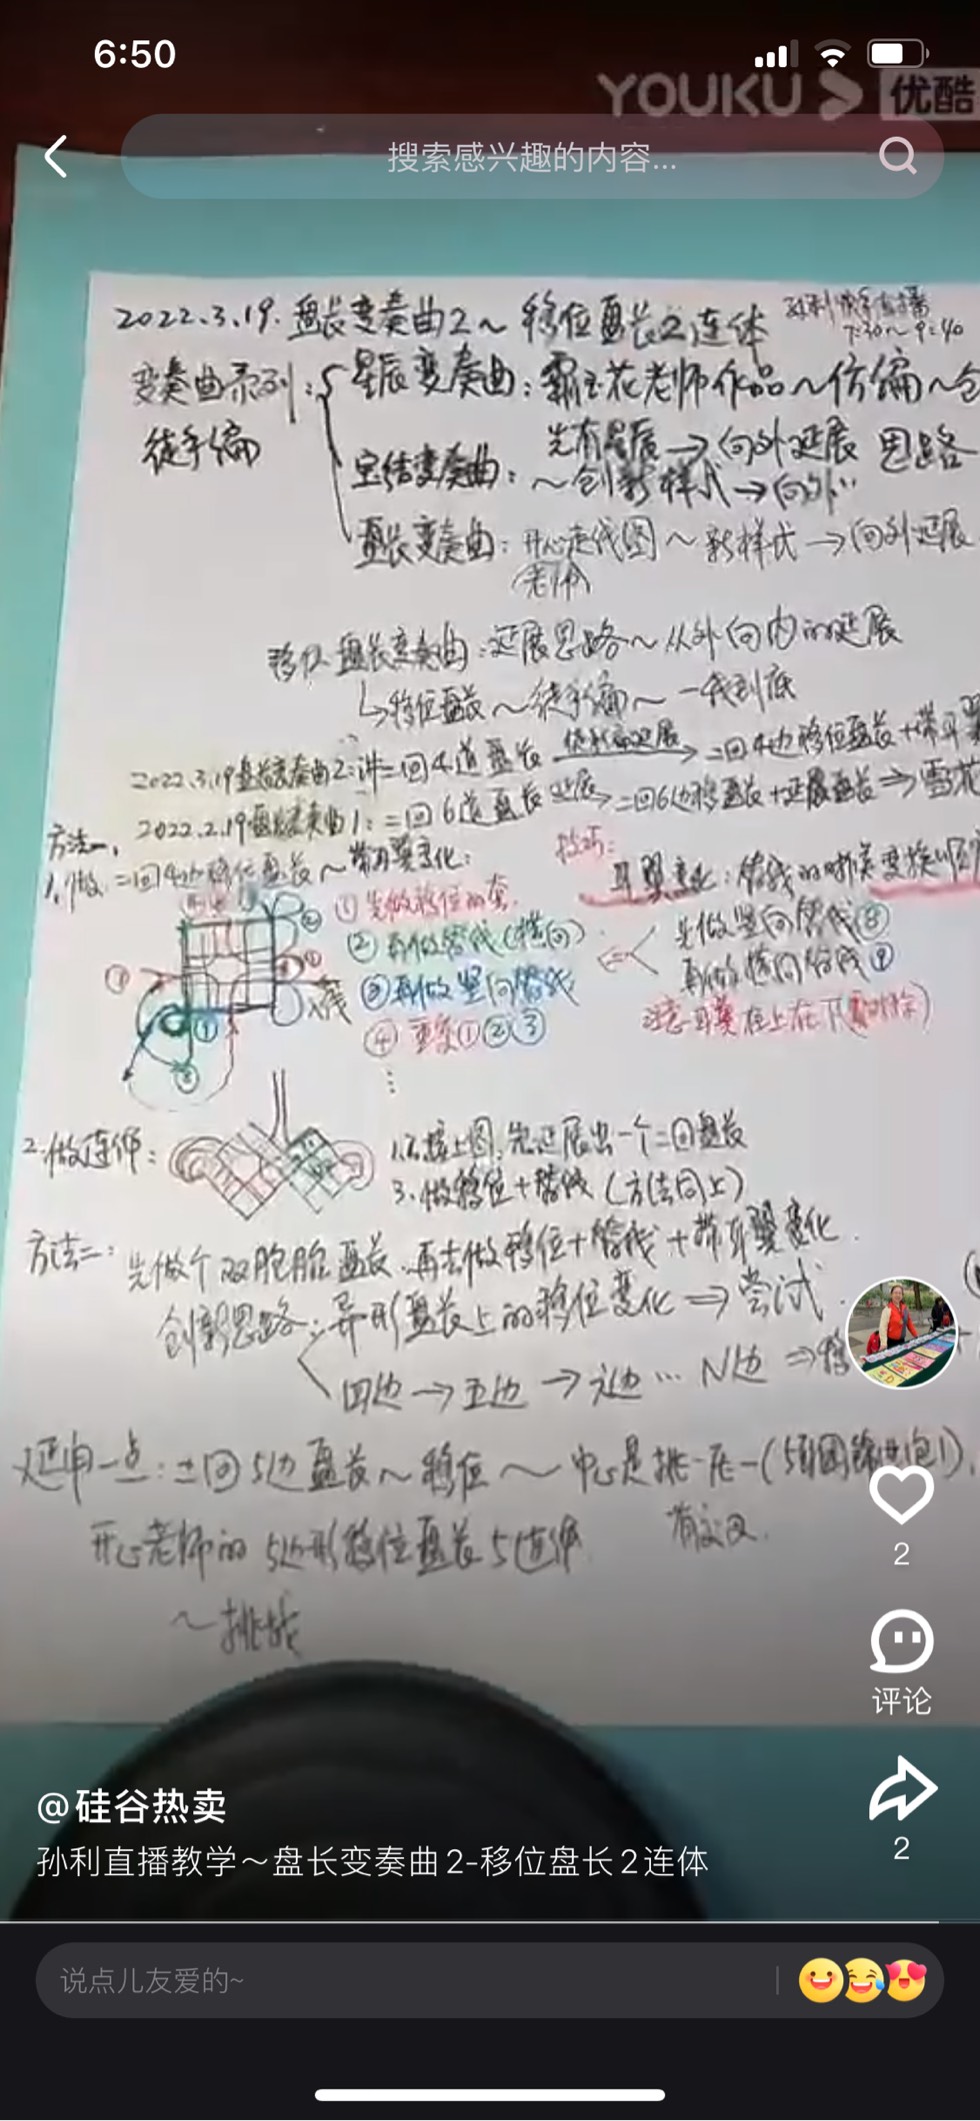 6:50
YOUKU 优酷
搜索感兴趣的内容...
2022.3.19. 盘长变奏曲2~移位盘长2连体
7:30~9:40
变奏曲系列: 星辰变奏曲: 霸王花老师作品~仿编~
徒手编
先有星辰→向外延展 思路
宝结变奏曲: ~创新样式→向外
盘长变奏曲: 开心走线图~新样式→向外延展
(老师)
移位盘长变奏曲: 延展思路~从外向内的延展
↳移位盘长~徒手编~一线到底
2022.3.19盘长变奏曲2: 讲二回4道盘长 → 二回4边移位盘长+带耳翼
2022.2.19盘长变奏曲1: 二回6道盘长 延展→ 二回6边移盘长+延展盘长⇒雪花
方法一,
1.做 二回4边移位盘长~带耳翼变化:
技巧:
耳翼变化: 替线的时候变换
① 先做移位的套
② 再做替线(横向)
③ 再做竖向替线
④ 重复①②③
先做竖向替线⑧
再做横向替线⑨
注意耳翼在上在下
2.做连体:
1.接上图, 先延展出一个二回盘长
3.做移位+替线(方法同上)
方法二: 先做个双胞胎盘长, 再去做移位+替线+带耳翼变化.
创新思路: 异形盘长上的移位变化⇒尝试.
四边→五边→六边…N边⇒移
延申一点: 二回5边盘长~移位~中心是挑一压一
开心老师的 5边形移位盘长5连体
~挑战
2
评论
2
@硅谷热卖
孙利直播教学~盘长变奏曲2-移位盘长2连体
说点儿友爱的~